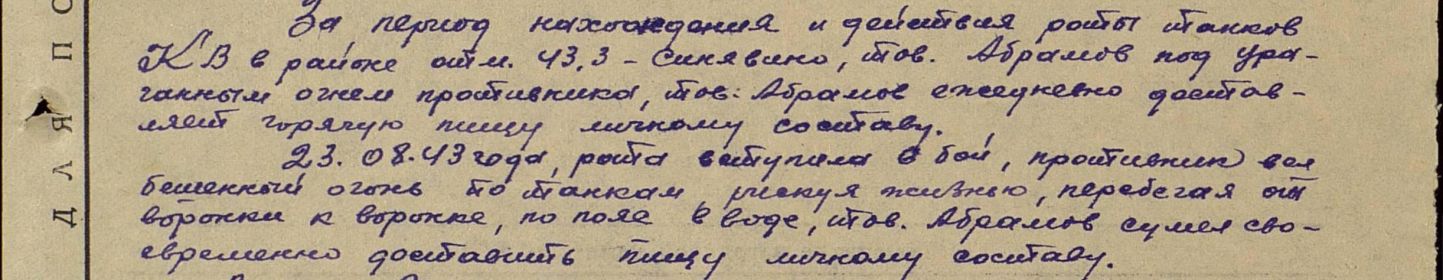 За период нахождения и действия роты танков
КВ в районе отм. 43,3 - Синявино, тов. Абрамов под ура-
ганным огнем противника, тов. Абрамов ежедневно достав-
ляет горячую пищу личному составу.
23.08.43 года, рота вступила в бой, противник вел
бешенный огонь по танкам рискуя жизнью, перебегая от
воронки к воронке, по пояс в воде, тов. Абрамов сумел сво-
евременно доставить пищу личному составу.
Д Л Я П О